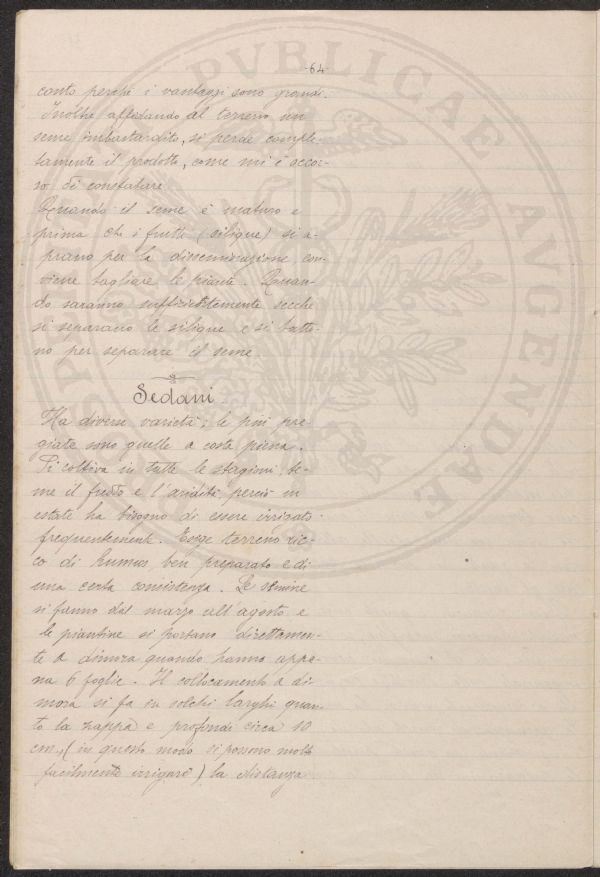 -64-
canto perchè i vantaggi sono grandi.
Inoltre affidando al terreno un
seme imbastardito, si perde comple-
tamente il prodotto, come mi è occor-
so di constatare
Quando il seme è maturo e
prima che i frutti (silique) si a-
prano per la disseminazione con-
viene tagliare le piante. Quan-
do saranno sufficientemente secche
si separano le silique e si batto-
no per separare il seme
Sedani
Ha diverse varietà; le più pre-
giate sono quelle a costa piena.
Si coltiva in tutte le stagioni, te-
me il freddo e l'aridità, perciò in
estate ha bisogno di essere irrigato
frequentemente. Esige terreno ric-
co di humus, ben preparato e di
una certa consistenza. Le semine
si fanno dal marzo all'agosto e
le piantine si portano direttamen-
te a dimora quando hanno appe-
na 6 foglie. Il collocamento a di-
mora si fa in solchi larghi quan-
to la zappa e profondi circa 10
cm., (in questo modo si possono molto
facilmente irrigare) la distanza
PVBLICAE
AVGENDAE